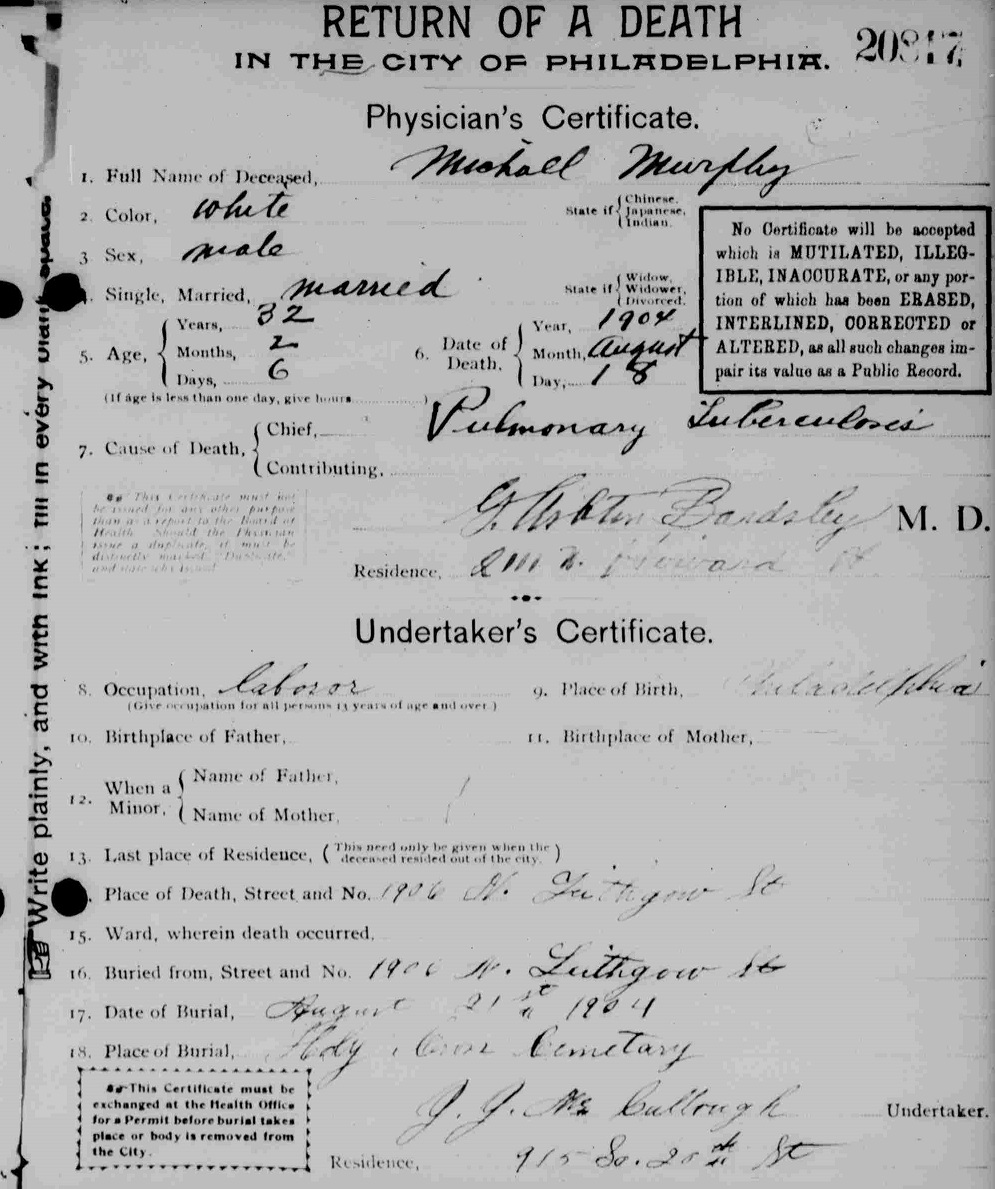 RETURN OF A DEATH
IN THE CITY OF PHILADELPHIA.
20817,
Physician's Certificate.
1. Full Name of Deceased, Michael Murphy
2. Color, white
State if { Chinese. Japanese, Indian.
3 Sex, male
4. Single, Married, married
State if { Widow, Widower, Divorced.
5. Age, { Years, 32
Months, 2
Days, 6
6. Date of Death, { Year, 1904
Month, August
Day, 18
(If age is less than one day, give hours )
No Certificate will be accepted
which is MUTILATED, ILLEG-
IBLE, INACCURATE, or any por-
tion of which has been ERASED,
INTERLINED, CORRECTED or
ALTERED, as all such changes im-
pair its value as a Public Record.
7. Cause of Death, { Chief, Pulmonary Tuberculosis
Contributing,
This Certificate must not
be issued for any other purpose
than as a report to the Board of
Health. Should the Physician
issue a duplicate, it must be
distinctly marked, "Duplicate,"
and
G. Ashton Bardsley M. D.
Residence, N. Howard St.
Undertaker's Certificate.
8. Occupation, Laboror
(Give occupation for all persons 13 years of age and over.)
9. Place of Birth, Philadelphia
10. Birthplace of Father,
11. Birthplace of Mother,
12. When a Minor, { Name of Father,
Name of Mother,
13. Last place of Residence, ( This need only be given when the deceased resided out of the city. )
. Place of Death, Street and No. 1906 N. Leithgow St
15. Ward, wherein death occurred,
16. Buried from, Street and No. 1906 N. Leithgow St
17. Date of Burial, August 21st 1904
18. Place of Burial, Holy Cross Cemetary
This Certificate must be
exchanged at the Health Office
for a Permit before burial takes
place or body is removed from
the City.
J. J. Mc Cullough Undertaker.
Residence, 915 So. 20th St
Write plainly, and with Ink; fill in every blank space.